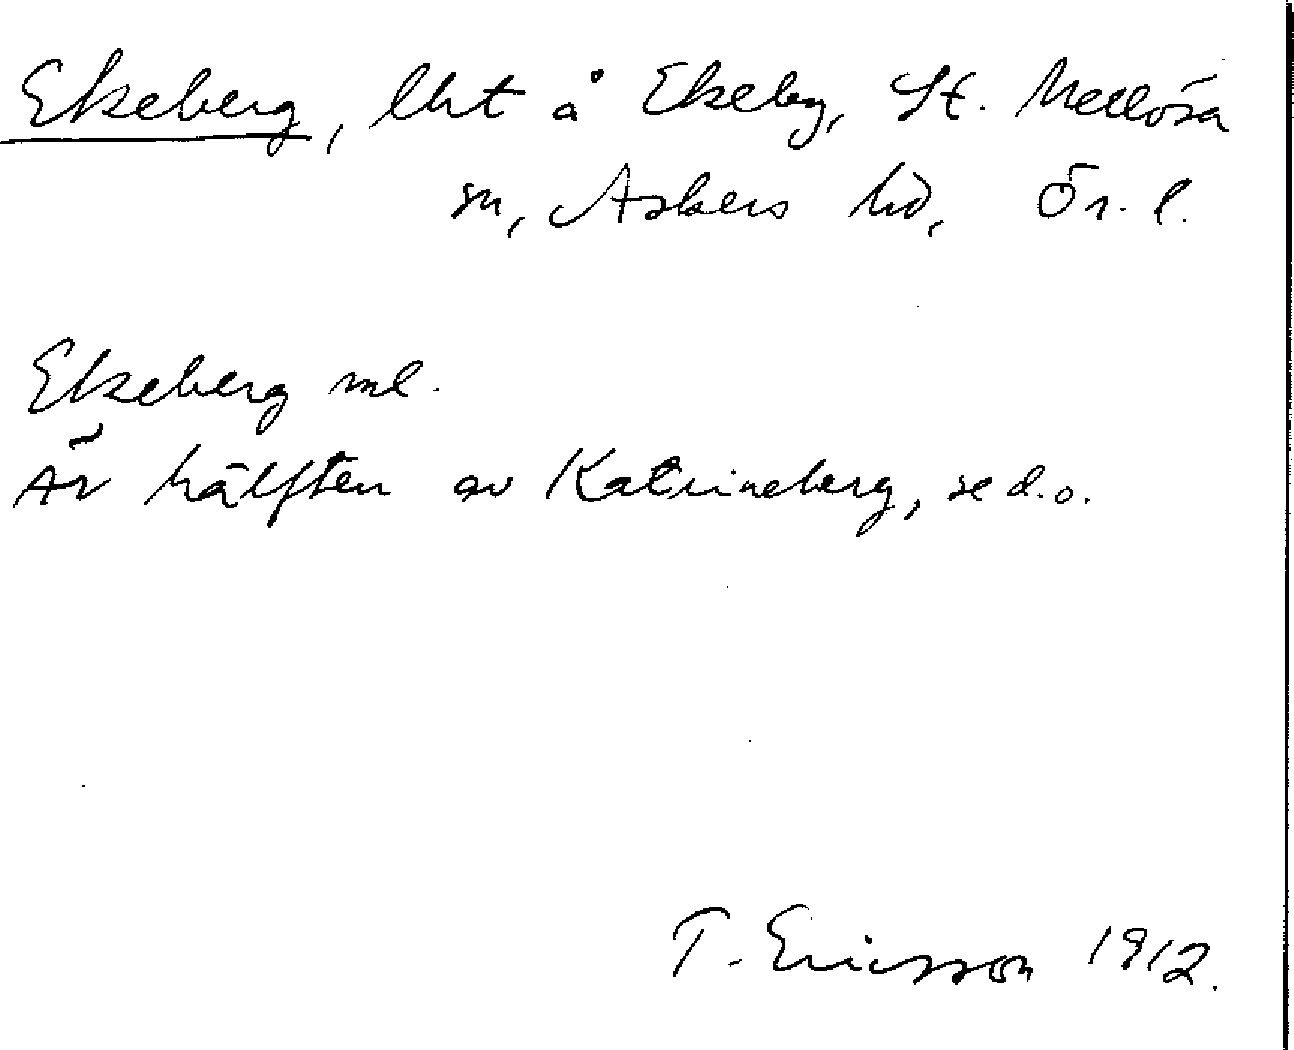 Ekeberg, lht å Ekeby, St. Mellösa
sn, Askers hd, Ör. l.
Ekeberg ml.
Är hälften av Katrineberg, se d.o.
T. Ericsson 1912.